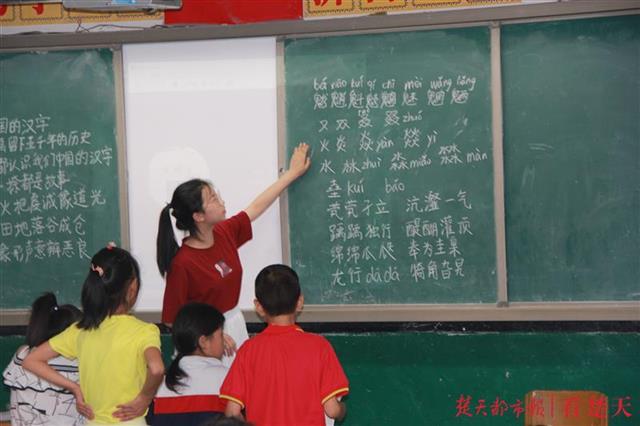 国的汉字
留下五千年的历史
都认识我们中国的汉字
都是故事
火把 道光
田地落谷成仓
象形声意辨恶良
bá xiāo kuí qí chī mèi wǎng liǎng
魃魈魁鬾魑魅魍魉
又 双 叒 叕 zhuó
火 炎 焱 yàn 燚 yì
水 沝 zhuǐ 淼 miǎo 㵘 màn
茕茕孑立 沆瀣一气
踽踽独行 醍醐灌顶
绵绵瓜瓞 奉为圭臬
龙行 dá dá 犄角旮旯
楚天都市报|看楚天